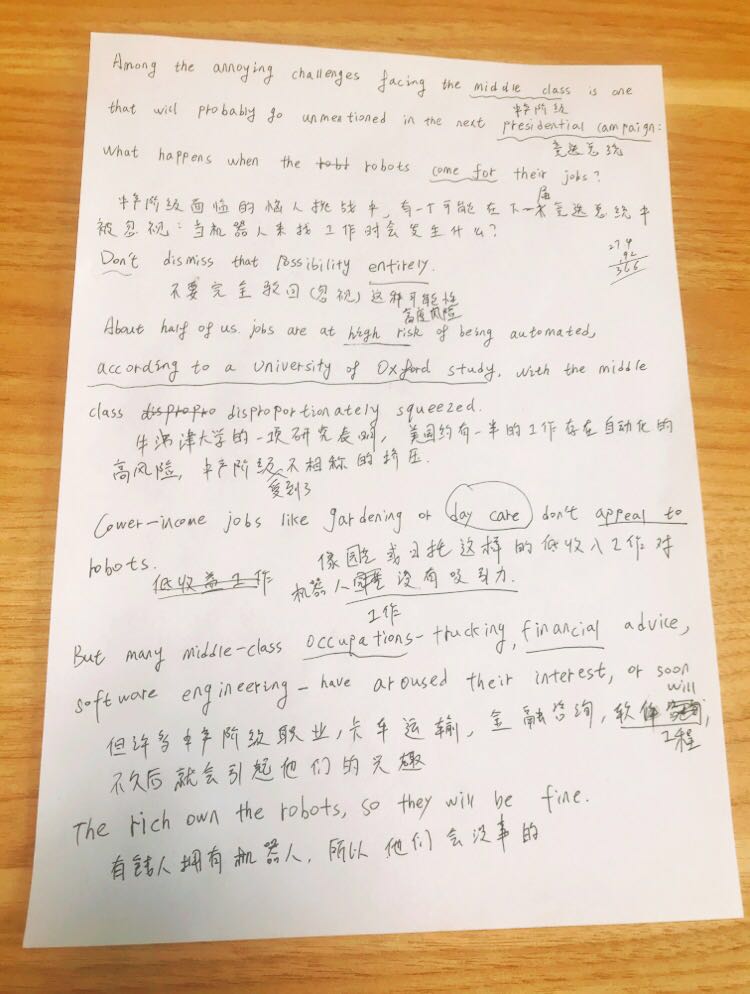 Among the annoying challenges facing the middle class is one
中产阶级
that will probably go unmentioned in the next presidential campaign:
竞选总统
what happens when the robots come for their jobs?
中产阶级面临的恼人挑战中,有一个可能在下一届竞选总统中
被忽视:当机器人来找工作时会发生什么?
274
92
366
Don't dismiss that possibility entirely.
不要完全驳回(忽视)这种可能性
高度风险
About half of us. jobs are at high risk of being automated,
according to a University of Oxford study, with the middle
class dispropro disproportionately squeezed.
牛津大学的一项研究表明,美国约有一半的工作存在自动化的
高风险,中产阶级不相称的挤压.
受到了
Lower-income jobs like gardening or day care don't appeal to
robots.
像园艺或日托这样的低收入工作对
低收益工作
机器人没有吸引力.
工作
But many middle-class occupations-trucking, financial advice,
software engineering - have aroused their interest, or soon
will
但许多中产阶级职业,卡车运输,金融咨询,软件
工程
不久后就会引起他们的兴趣
The rich own the robots, so they will be fine.
有钱人拥有机器人,所以他们会没事的